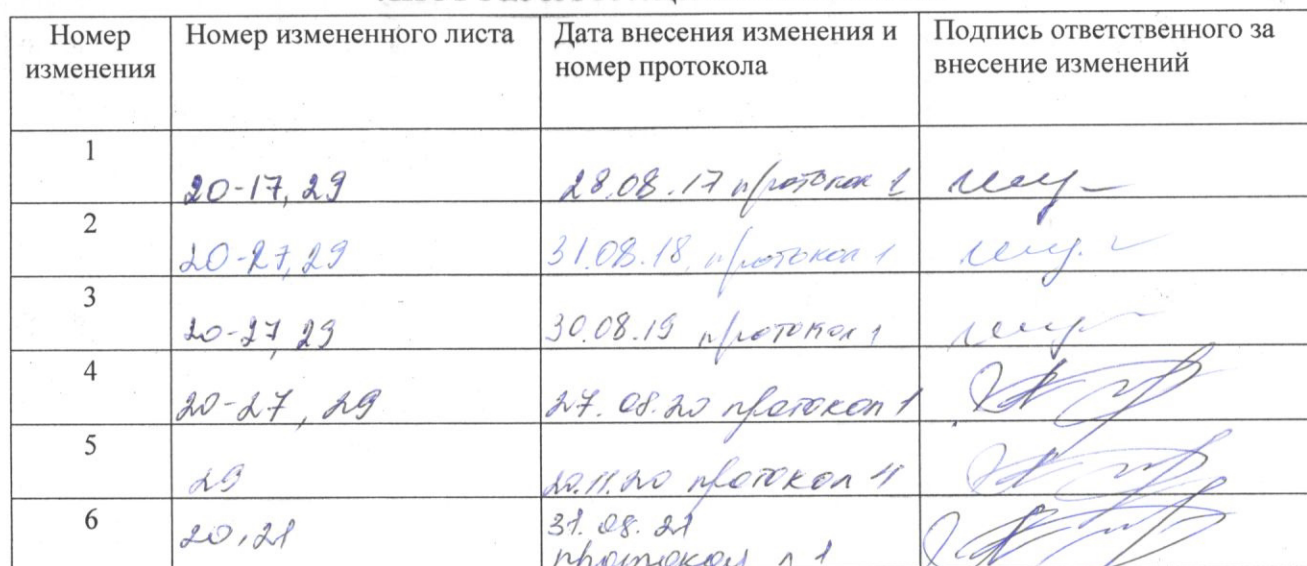 Номер изменения
Номер измененного листа
Дата внесения изменения и номер протокола
Подпись ответственного за внесение изменений
1
20-17, 29
28.08.17 протокол 1
2
20-27, 29
31.08.18. протокол 1
3
20-27, 29
30.08.19 протокол 1
4
20-27, 29
27.08.20 протокол 1
5
29
20.11.20 протокол 4
6
20, 21
31.08.21
протокол л 1